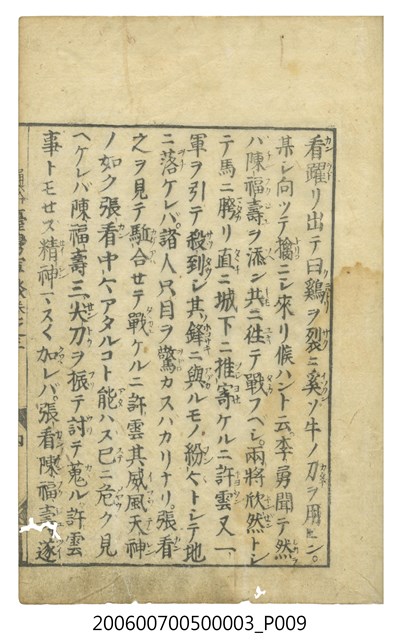 看躍リ出テ曰鶏ヲ裂ニ奚ゾ牛ノ刀ヲ用ヒン。
某シ向ツテ擒ニシ來リ候ハント云李勇聞テ然
ハ陳福壽ヲ添ン共ニ往テ戰フヘシ。兩將欣然トシ
テ馬ニ騰リ直ニ城下ニ推寄ケルニ許雲又一
軍ヲ引テ殺到シ其鋒ニ與ルモノ紛々トシテ地
ニ落ケレバ。諸人只目ヲ驚カスハカリナリ。張看
之ヲ見テ駈合せテ戰ケルニ許雲其威風天神
ノ如ク張看中々アタルコト能ハス已ニ危ク見
ヘケレバ陳福壽三尖刀ヲ振テ討テ蒐ル許雲
事トモせス精神マスく加レバ。張看陳福壽遂
200600700500003_P009